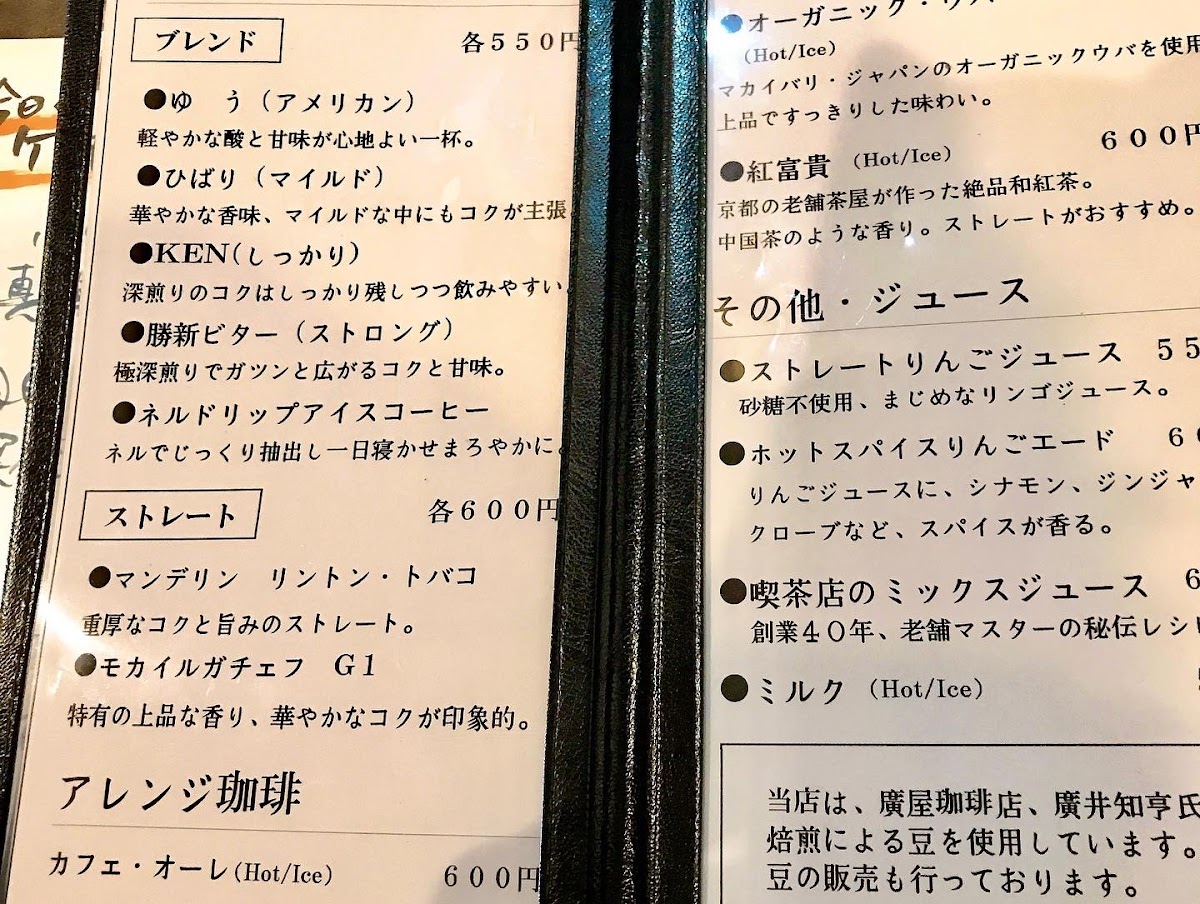 ブレンド 各550円
●ゆ う（アメリカン）
軽やかな酸と甘味が心地よい一杯。
●ひばり（マイルド）
華やかな香味、マイルドな中にもコクが主張
●KEN(しっかり）
深煎りのコクはしっかり残しつつ飲みやすい。
●勝新ビター（ストロング）
極深煎りでガツンと広がるコクと甘味。
●ネルドリップアイスコーヒー
ネルでじっくり抽出し一日寝かせまろやかに。
ストレート 各600円
●マンデリン リントン・トバコ
重厚なコクと旨みのストレート。
●モカイルガチェフ G1
特有の上品な香り、華やかなコクが印象的。
アレンジ珈琲
カフェ・オーレ(Hot/Ice) 600円
●オーガニック・ウバ
(Hot/Ice)
マカイバリ・ジャパンのオーガニックウバを使用
上品ですっきりした味わい。
600円
●紅富貴 (Hot/Ice)
京都の老舗茶屋が作った絶品和紅茶。
中国茶のような香り。ストレートがおすすめ。
その他・ジュース
●ストレートりんごジュース 55
砂糖不使用、まじめなリンゴジュース。
●ホットスパイスりんごエード 6
りんごジュースに、シナモン、ジンジャ
クローブなど、スパイスが香る。
●喫茶店のミックスジュース 6
創業40年、老舗マスターの秘伝レシピ
●ミルク (Hot/Ice)
当店は、廣屋珈琲店、廣井知亨氏
焙煎による豆を使用しています。
豆の販売も行っております。